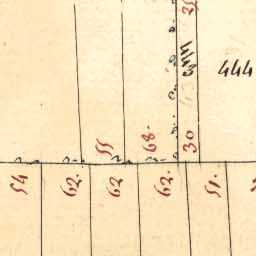 444
55
68.
30
54
62.
62
62.
51.